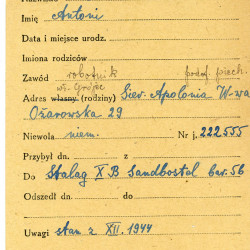 Imię Antoni
Data i miejsce urodz.
Imiona rodziców
Zawód robotnik podof. piech.
wś. Grójec
Adres własny (rodziny) Siev. Apolonia W-wa
Ożarowska 29
Niewola niem. Nr j. 222555
Przybył dn. z
Do Stalag XB Sandbostel bar. 56
Odszedł dn. do
Uwagi stan z XII. 1944